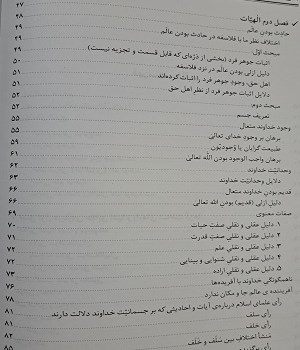 ۲۷
✓ فصل دوم الهیّات
۲۸
حادث بودن عالم
۲۹
اختلاف نظر ما با فلاسفه در حادث بودن عالم
مبحث اوّل:
اثبات جوهر فرد (بخشی از ذرّه‌ای که قابل قسمت و تجزیه نیست)
۵۰
دلیل ازلی بودن عالم در نزد فلاسفه
۵۱
اهل حق، وجود جوهر فرد را اثبات کرده‌اند
۵۲
دلایل اثبات جوهر فرد از نظر اهل حق
۵۲
مبحث دوم:
تعریف جسم
۵۵
وجود خداوند متعال
۵۵
برهان بر وجود خدای تعالی
۵۹
طبیعت گرایان یا وُجودیّون
۶۱
برهان واجب الوجود بودن الله تعالی
۶۲
وحدانیّت خداوند
۶۳
دلایل وحدانیّت خداوند
۶۴
قدیم بودن خداوند متعال
۶۶
دلیل ازلی (قدیم) بودن الله تعالی
۶۶
صفات معنوی
۶۹
۱. دلیل عقلی و نقلی صفت حیات
۷۰
۲. دلیل عقلی و نقلی صفت قدرت
۷۱
۳. دلیل عقلی و نقلی علم
۷۲
۴. دلیل عقلی و نقلی شنوایی و بینایی
۷۲
۵. دلیل عقلی و نقلی اراده
۷۳
ناهمگونگی خداوند با آفریده‌ها
۷۶
آفریننده ی عالم جا و مکان ندارد
۷۸
رأی علمای اسلام درباره‌ی آیات و احادیثی که بر جسمانیّت خداوند دلالت دارند
۸۱
رأی سلف
۸۱
رأی خلف
۸۲
منشأ اختلاف بین سَلَف و خَلَف
۸۵